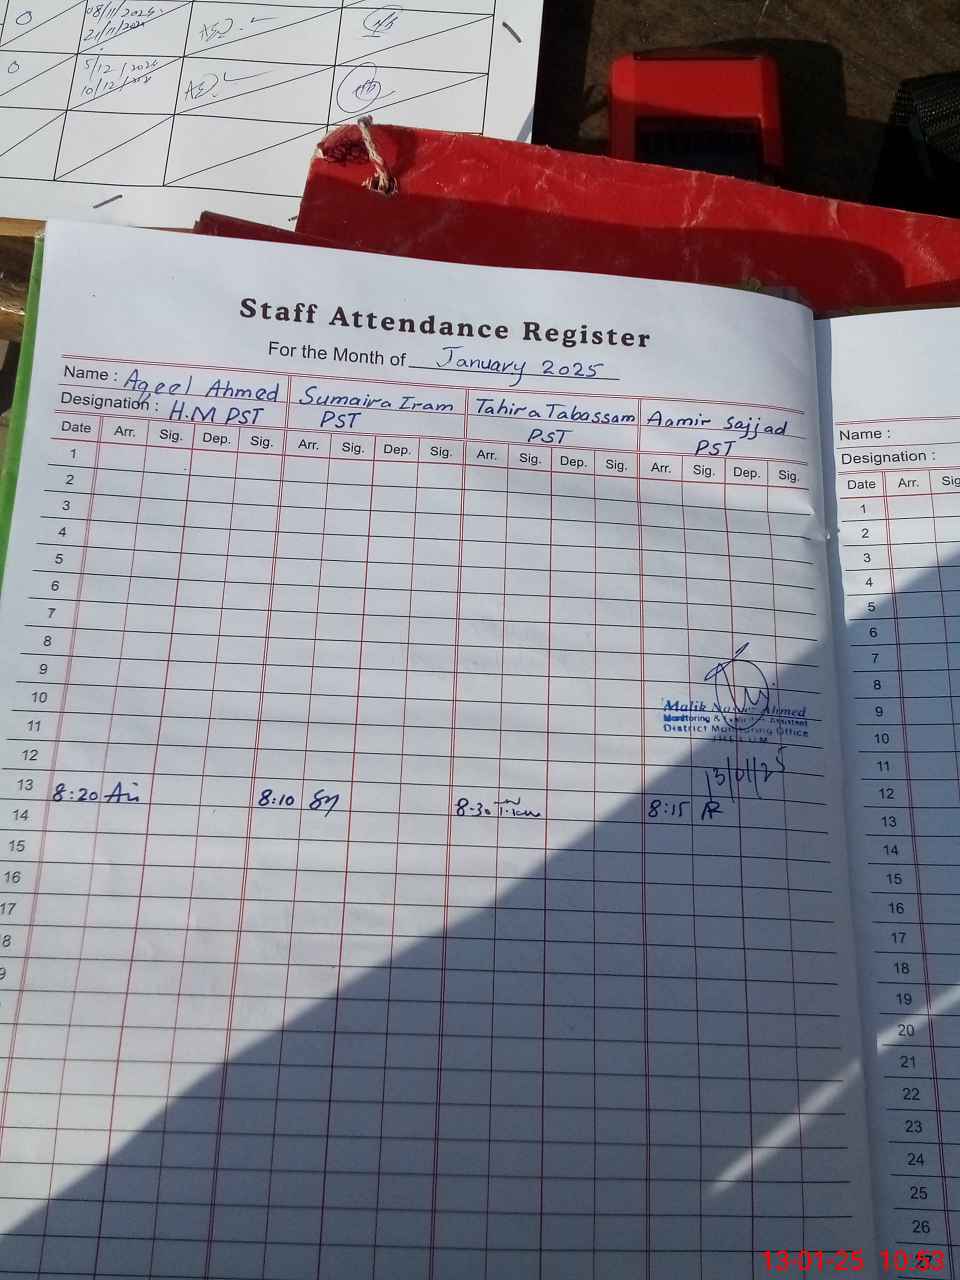 0 08/11/2024
21/11/2024
0 5/12/2024
10/12/2024
Staff Attendance Register
For the Month of January 2025
Name : Aqeel Ahmed Sumaira Iram Tahira Tabassam Aamir Sajjad
Designation : H.M PST PST PST PST
Date Arr. Sig. Dep. Sig. Arr. Sig. Dep. Sig. Arr. Sig. Dep. Sig. Arr. Sig. Dep. Sig.
1
2
3
4
5
6
7
8
9
10
11
12
13 8:20 8:10 8:30 8:15
14
15
16
17
8
9
Malik Ahmed
Monitoring & Assistant
District Monitoring Office
JHELUM
13/01/25
Name :
Designation :
Date Arr. Sig
1
2
3
4
5
6
7
8
9
10
11
12
13
14
15
16
17
18
19
20
21
22
23
24
25
26
27
13-01-25 10:53